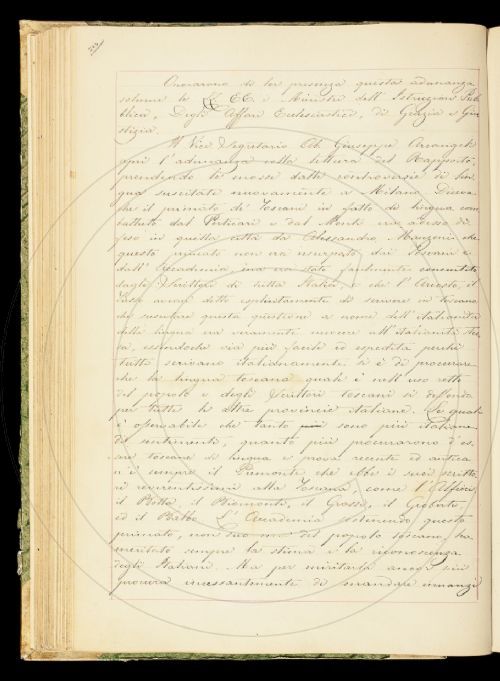 Onorarono di lor presenza questa adunanza
solenne le LL. EE. i Ministri dell'Istruzione Pub
blica, Degli Affari Ecclesiastici, di Grazia e Giu
stizia.
Il Vice Segretario Ab. Giuseppe Arcangeli
aprì l'adunanza colla lettura del Rapporto,
prendendo le mosse dalle controversie di lin
gua suscitate nuovamente a Milano. Disse
che il primato de' Toscani in fatto di lingua com
battuto dal Perticari e dal Monti era adesso di
feso in quella città da Alessandro Manzoni: che
questo primato non era usurpato dai Toscani e
dall'Accademia, ma era stato consentito
dagli Scrittori di tutta Italia, e che l'Ariosto, il
avean detto esplicitamente di scrivere in toscano
che questa questione a nome dell'italianità
della lingua era veramente nuocere all'italianità
sa, essendochè via più facile ed spedita perchè
tutti scrivano italianamente, si è di procurare
che la lingua toscana quale è nell'uso retto
del popolo e degli Scrittori toscani si diffonda
per tutte le altre provincie italiane. Se quali
è osservabile che tanto più sono più italiane
di sentimenti, quanto più procurarono d'es
sere toscane di lingua e prova recente ed antica
n'è sempre il Piemonte che ebbe i suoi scritto
ri reverentissimi alla Toscana, come l'Alfieri,
il Botta, il Biamonti, il Grassi, il Gioberti,
ed il Balbo. L'Accademia sostenendo questo
primato, non suo ma del popolo toscano, ha
meritato sempre la stima e la riconoscenza
degli Italiani. Ma per meritarla ancor più
procura incessantemente di mandare innanzi